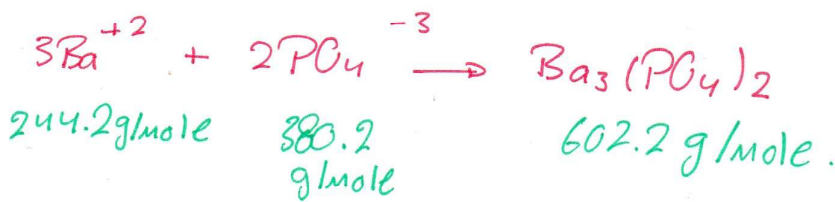 3Ba⁺² + 2PO₄⁻³ → Ba₃(PO₄)₂
244.2g/mole 380.2 602.2 g/mole.
g/mole